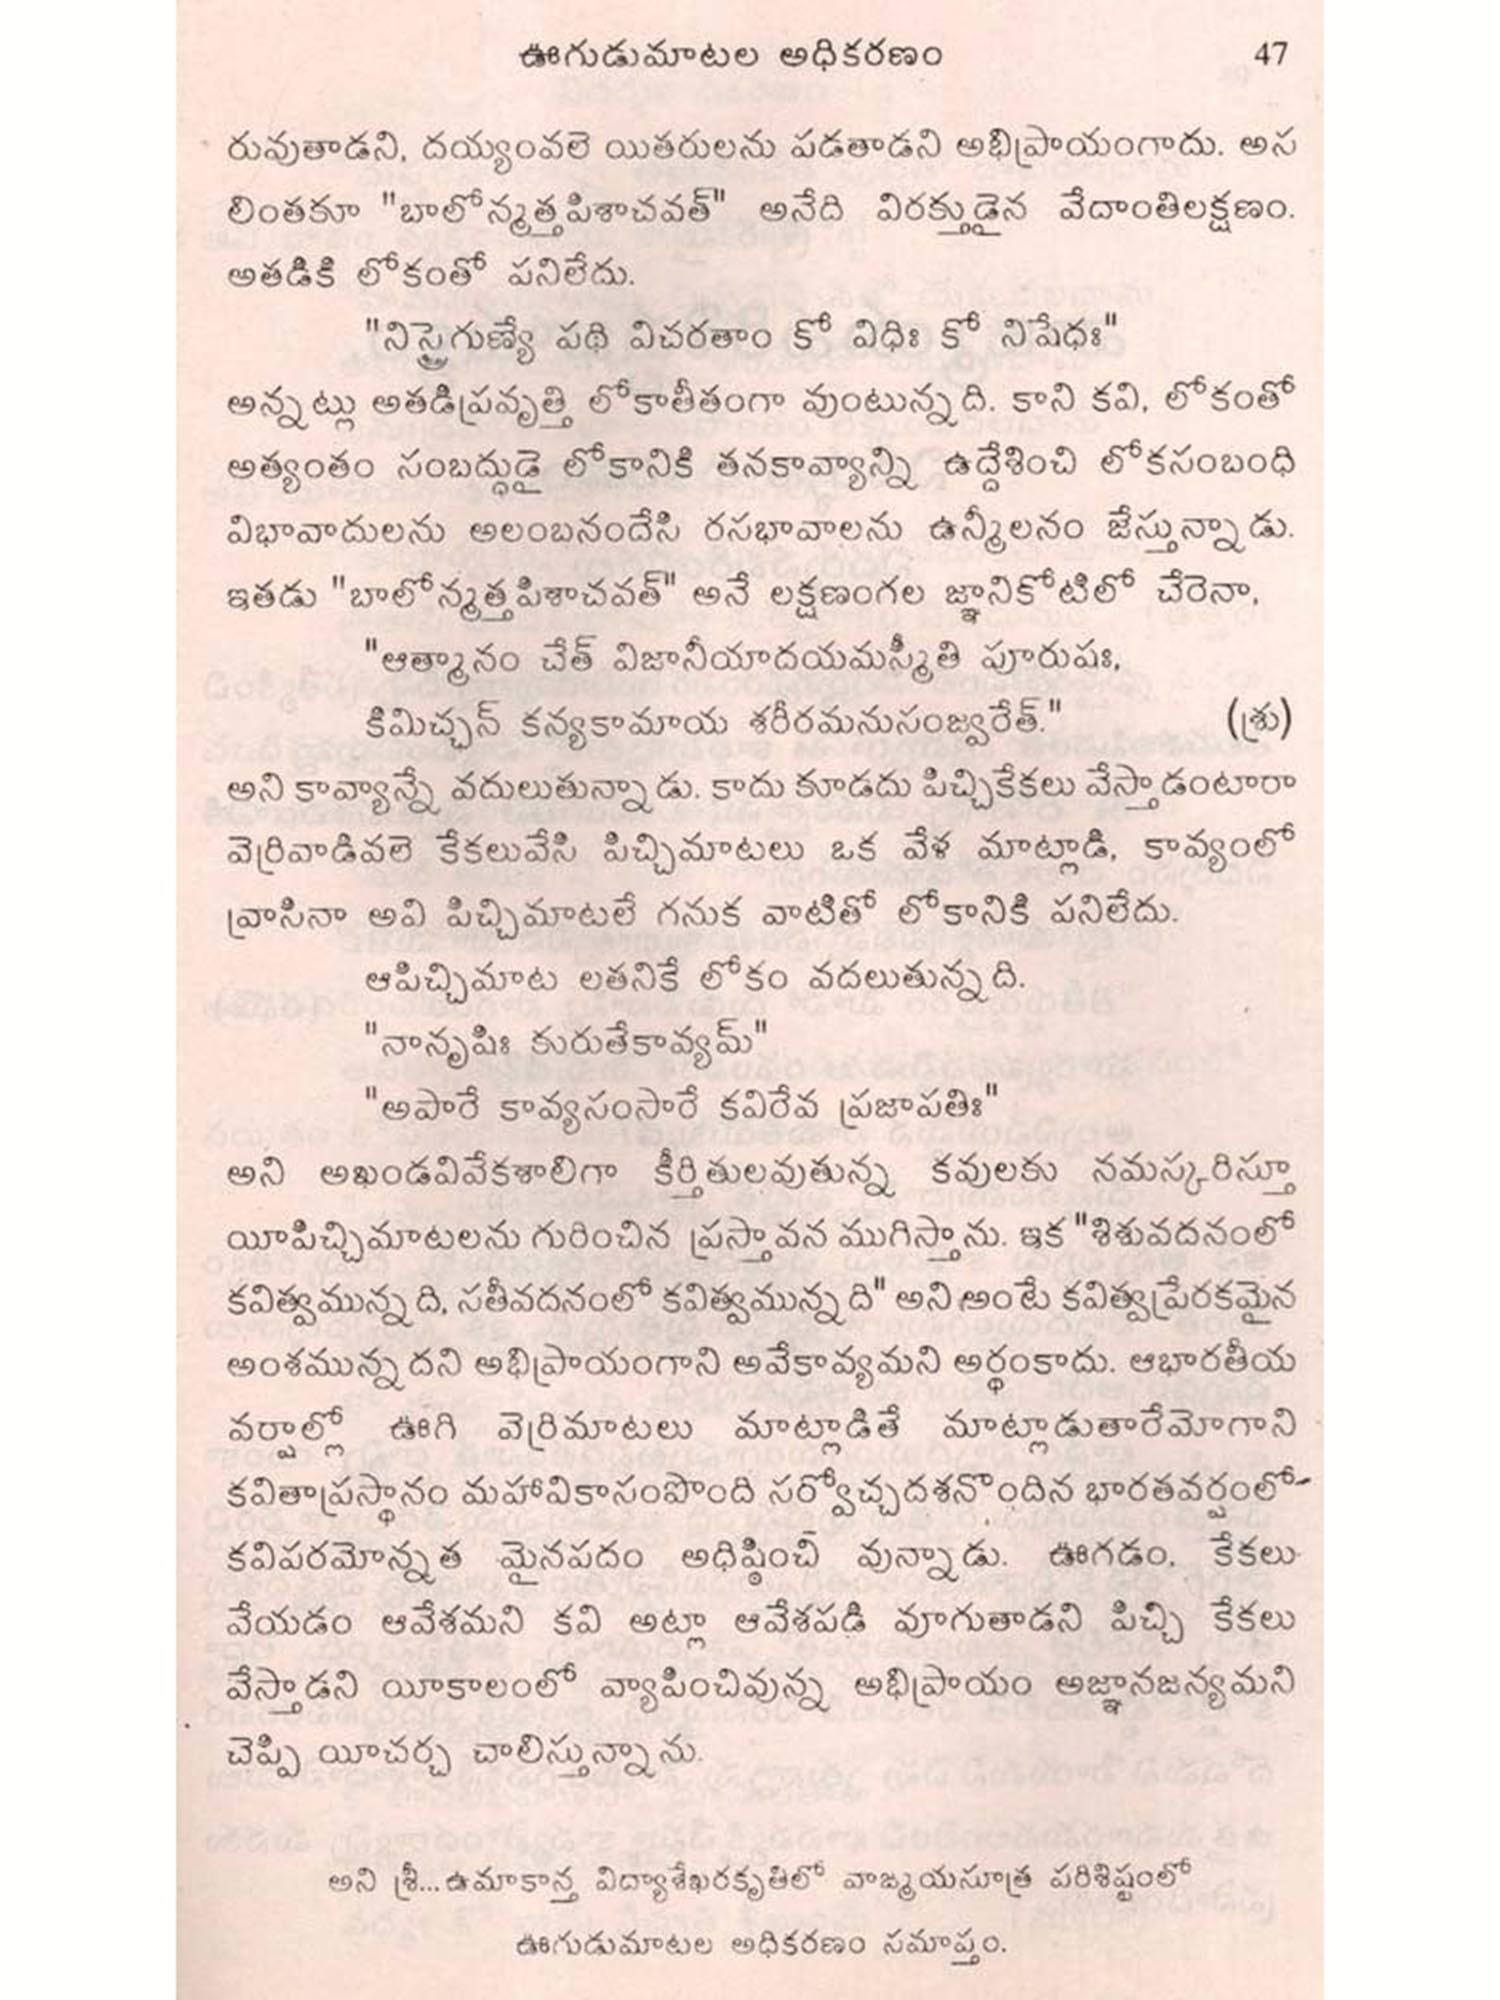 ఊగుడుమాటల అధికరణం 47
రువుతాడని, దయ్యంవలె యితరులను పడతాడని అభిప్రాయంగాదు. అస
లింతకూ "బాలోన్మత్తపిశాచవత్" అనేది విరక్తుడైన వేదాంతిలక్షణం.
అతడికి లోకంతో పనిలేదు.
"నిస్త్రైగుణ్యే పథి విచరతాం కో విధిః కో నిషేధః"
అన్నట్లు అతడిప్రవృత్తి లోకాతీతంగా వుంటున్నది. కాని కవి, లోకంతో
అత్యంతం సంబద్ధుడై లోకానికి తనకావ్యాన్ని ఉద్దేశించి లోకసంబంధి
విభావాదులను అలంబనందేసి రసభావాలను ఉన్మీలనం జేస్తున్నాడు.
ఇతడు "బాలోన్మత్తపిశాచవత్" అనే లక్షణంగల జ్ఞానికోటిలో చేరెనా,
"ఆత్మానం చేత్ విజానీయాదయమస్మీతి పూరుషః,
కిమిచ్ఛన్ కన్యకామాయ శరీరమనుసంజ్వరేత్." (శ్రు)
అని కావ్యాన్నే వదులుతున్నాడు. కాదు కూడదు పిచ్చికేకలు వేస్తాడంటారా
వెర్రివాడివలె కేకలువేసి పిచ్చిమాటలు ఒక వేళ మాట్లాడి, కావ్యంలో
వ్రాసినా అవి పిచ్చిమాటలే గనుక వాటితో లోకానికి పనిలేదు.
ఆపిచ్చిమాట లతనికే లోకం వదలుతున్నది.
"నానృషిః కురుతేకావ్యమ్"
"అపారే కావ్యసంసారే కవిరేవ ప్రజాపతిః"
అని అఖండవివేకశాలిగా కీర్తితులవుతున్న కవులకు నమస్కరిస్తూ
యీపిచ్చిమాటలను గురించిన ప్రస్తావన ముగిస్తాను. ఇక "శిశువదనంలో
కవిత్వమున్నది, సతీవదనంలో కవిత్వమున్నది" అని అంటే కవిత్వప్రేరకమైన
అంశమున్నదని అభిప్రాయంగాని అవేకావ్యమని అర్థంకాదు. ఆభారతీయ
వర్షాల్లో ఊగి వెర్రిమాటలు మాట్లాడితే మాట్లాడుతారేమోగాని
కవితాప్రస్థానం మహావికాసంపొంది సర్వోచ్చదశనొందిన భారతవర్షంలో
కవిపరమోన్నత మైనపదం అధిష్ఠించి వున్నాడు. ఊగడం, కేకలు
వేయడం ఆవేశమని కవి అట్లా ఆవేశపడి వూగుతాడని పిచ్చి కేకలు
వేస్తాడని యీకాలంలో వ్యాపించివున్న అభిప్రాయం అజ్ఞానజన్యమని
చెప్పి యీచర్చ చాలిస్తున్నాను.
అని శ్రీ...ఉమాకాన్త విద్యాశేఖరకృతిలో వాఙ్మయసూత్ర పరిశిష్టంలో
ఊగుడుమాటల అధికరణం సమాప్తం.